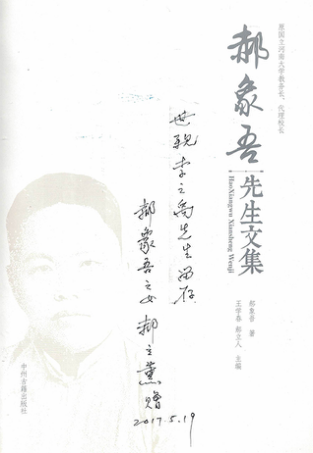 民国之河南大学教务长、代理校长
郝象吾
先生文集
HaoXiangwu Xiansheng Wenji
郝象吾 著
王学春 郝立人 主编
世姚 李之禹先生 留存
郝象吾之女 郝立薰 赠
2017.5.19
中州古籍出版社